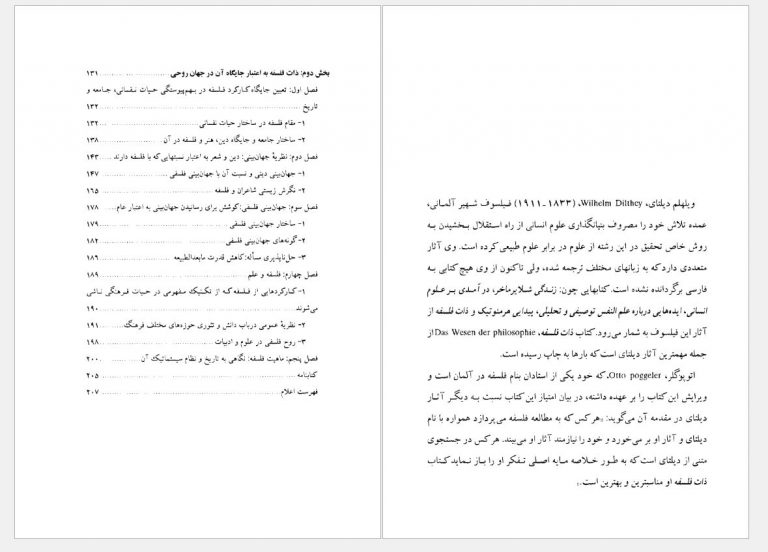 ویلهلم دیلتای، Wilhelm Dilthey، (۱۸۳۳-۱۹۱۱) فیلسوف شهیر آلمانی،
عمده تلاش خود را مصروف بنیانگذاری علوم انسانی از راه استقلال بخشیدن به
روش خاص تحقیق در این رشته از علوم در برابر علوم طبیعی کرده است. وی آثار
متعددی دارد که به زبانهای مختلف ترجمه شده، ولی تاکنون از وی هیچ کتابی به
فارسی برگردانده نشده است. کتابهایی چون: زندگی شلایرماخر، در آمدی بر علوم
انسانی، ایده‌هایی درباره علم النفس توصیفی و تحلیلی، پیدایی هرمنوتیک و ذات فلسفه از
آثار این فیلسوف به شمار می‌رود. کتاب ذات فلسفه، Das Wesen der philosophie از
جمله مهمترین آثار دیلتای است که بارها به چاپ رسیده است.
اتوپوگلر، Otto poggeler، که خود یکی از استادان بنام فلسفه در آلمان است و
ویرایش این کتاب را بر عهده داشته، در بیان امتیاز این کتاب نسبت به دیگر آثار
دیلتای در مقدمه آن می‌گوید: «هر کس که به مطالعه فلسفه می‌پردازد همواره با نام
دیلتای و آثار او بر می‌خورد و خود را نیازمند آثار او می‌بیند. هر کس در جستجوی
متنی از دیلتای است که به طور خلاصه مایه اصلی تفکر او را باز نماید کتاب
ذات فلسفه او مناسبترین و بهترین است.»
بخش دوم: ذات فلسفه به اعتبار جایگاه آن در جهان روحی ........ ۱۳۱
فصل اول: تعیین جایگاه کارکرد فلسفه در بهم‌پیوستگی حیات نفسانی، جامعه و
تاریخ ........ ۱۳۲
۱- مقام فلسفه در ساختار حیات نفسانی ........ ۱۳۲
۲- ساختار جامعه و جایگاه دین، هنر و فلسفه در آن ........ ۱۳۸
فصل دوم: نظریهٔ جهان‌بینی: دین و شعر به اعتبار نسبتهایی که با فلسفه دارند ........ ۱۴۳
۱- جهان‌بینی دینی و نسبت آن با جهان‌بینی فلسفی ........ ۱۴۷
۲- نگرش زیستی شاعران و فلسفه ........ ۱۶۵
فصل سوم: جهان‌بینی فلسفی: کوشش برای رسانیدن جهان‌بینی به اعتبار عام ........ ۱۷۸
۱- ساختار جهان‌بینی فلسفی ........ ۱۷۹
۲- گونه‌های جهان‌بینی فلسفی ........ ۱۸۲
۳- حل‌ناپذیری مسأله: کاهش قدرت مابعدالطبیعه ........ ۱۸۶
فصل چهارم: فلسفه و علم ........ ۱۸۹
۱- کارکردهایی از فلسفه که از تکنیک مفهومی در حیات فرهنگی ناشی
می‌شوند ........ ۱۹۰
۲- نظریهٔ عمومی درباب دانش و تئوری حوزه‌های مختلف فرهنگ ........ ۱۹۱
۳- روح فلسفی در علوم و ادبیات ........ ۱۹۸
فصل پنجم: ماهیت فلسفه: نگاهی به تاریخ و نظام سیستماتیک آن ........ ۲۰۰
کتابنامه ........ ۲۰۵
فهرست اعلام ........ ۲۰۷